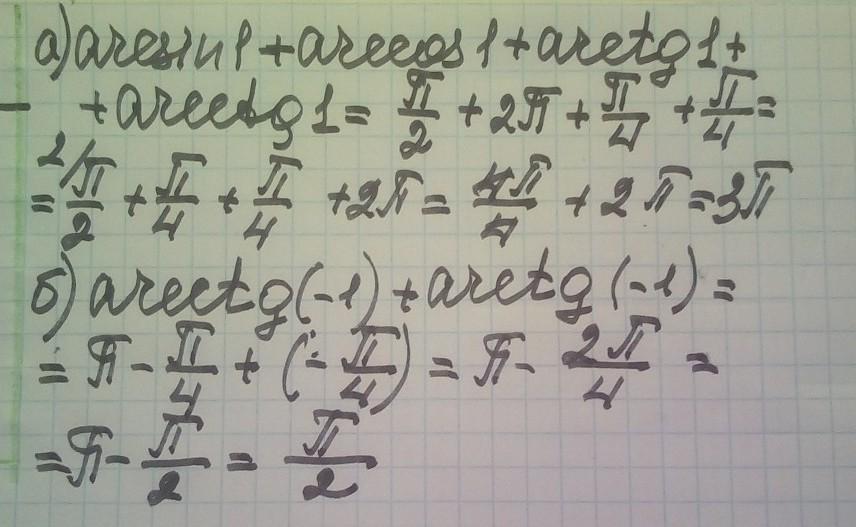 а) arcsin1 + arccos1 + arctg1 +
+ arcctg1 = π/2 + 2π + π/4 + π/4 =
= 2/π/2 + π/4 + π/4 + 2π = 4π/4 + 2π = 3π
б) arcctg(-1) + arctg(-1) =
= π - π/4 + (-π/4) = π - 2π/4 =
= π - π/2 = π/2